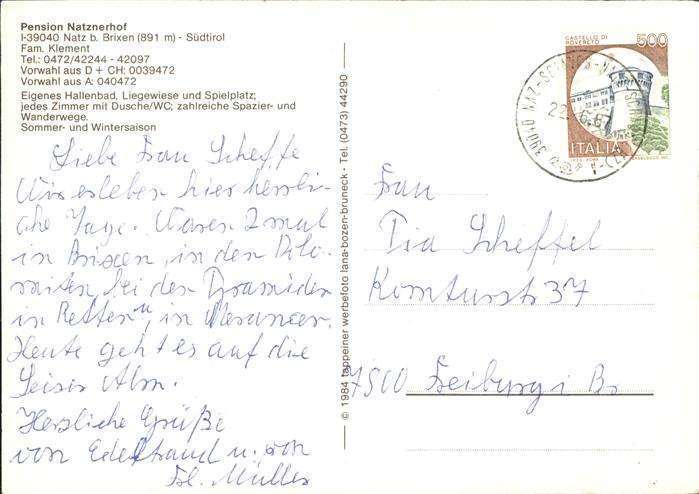 Pension Natznerhof
I-39040 Natz b. Brixen (891 m) - Südtirol
Fam. Klement
Tel.: 0472/42244 - 42097
Vorwahl aus D + CH: 0039472
Vorwahl aus A: 040472
Eigenes Hallenbad, Liegewiese und Spielplatz;
jedes Zimmer mit Dusche/WC; zahlreiche Spazier- und
Wanderwege.
Sommer- und Wintersaison
Liebe Frau Scheffe
Wir erleben hier herrli-
che Tage. Waren 2 mal
in Brixen, in den Dolo-
miten, bei den Pyramiden
in Ritten u. in
Heute geht es auf die
Seiser Alm.
Herzliche Grüße
von Edeltraud u. von
Fl. Müller
© 1984 tappeiner werbefoto lana-bozen-bruneck - Tel. (0473) 44290
CASTELLO DI
ROVERETO
500
ITALIA
39040 NAZ-SCIAVES
Frau
Pia Scheffel
Komturstr 37
7800 Freiburg i Br